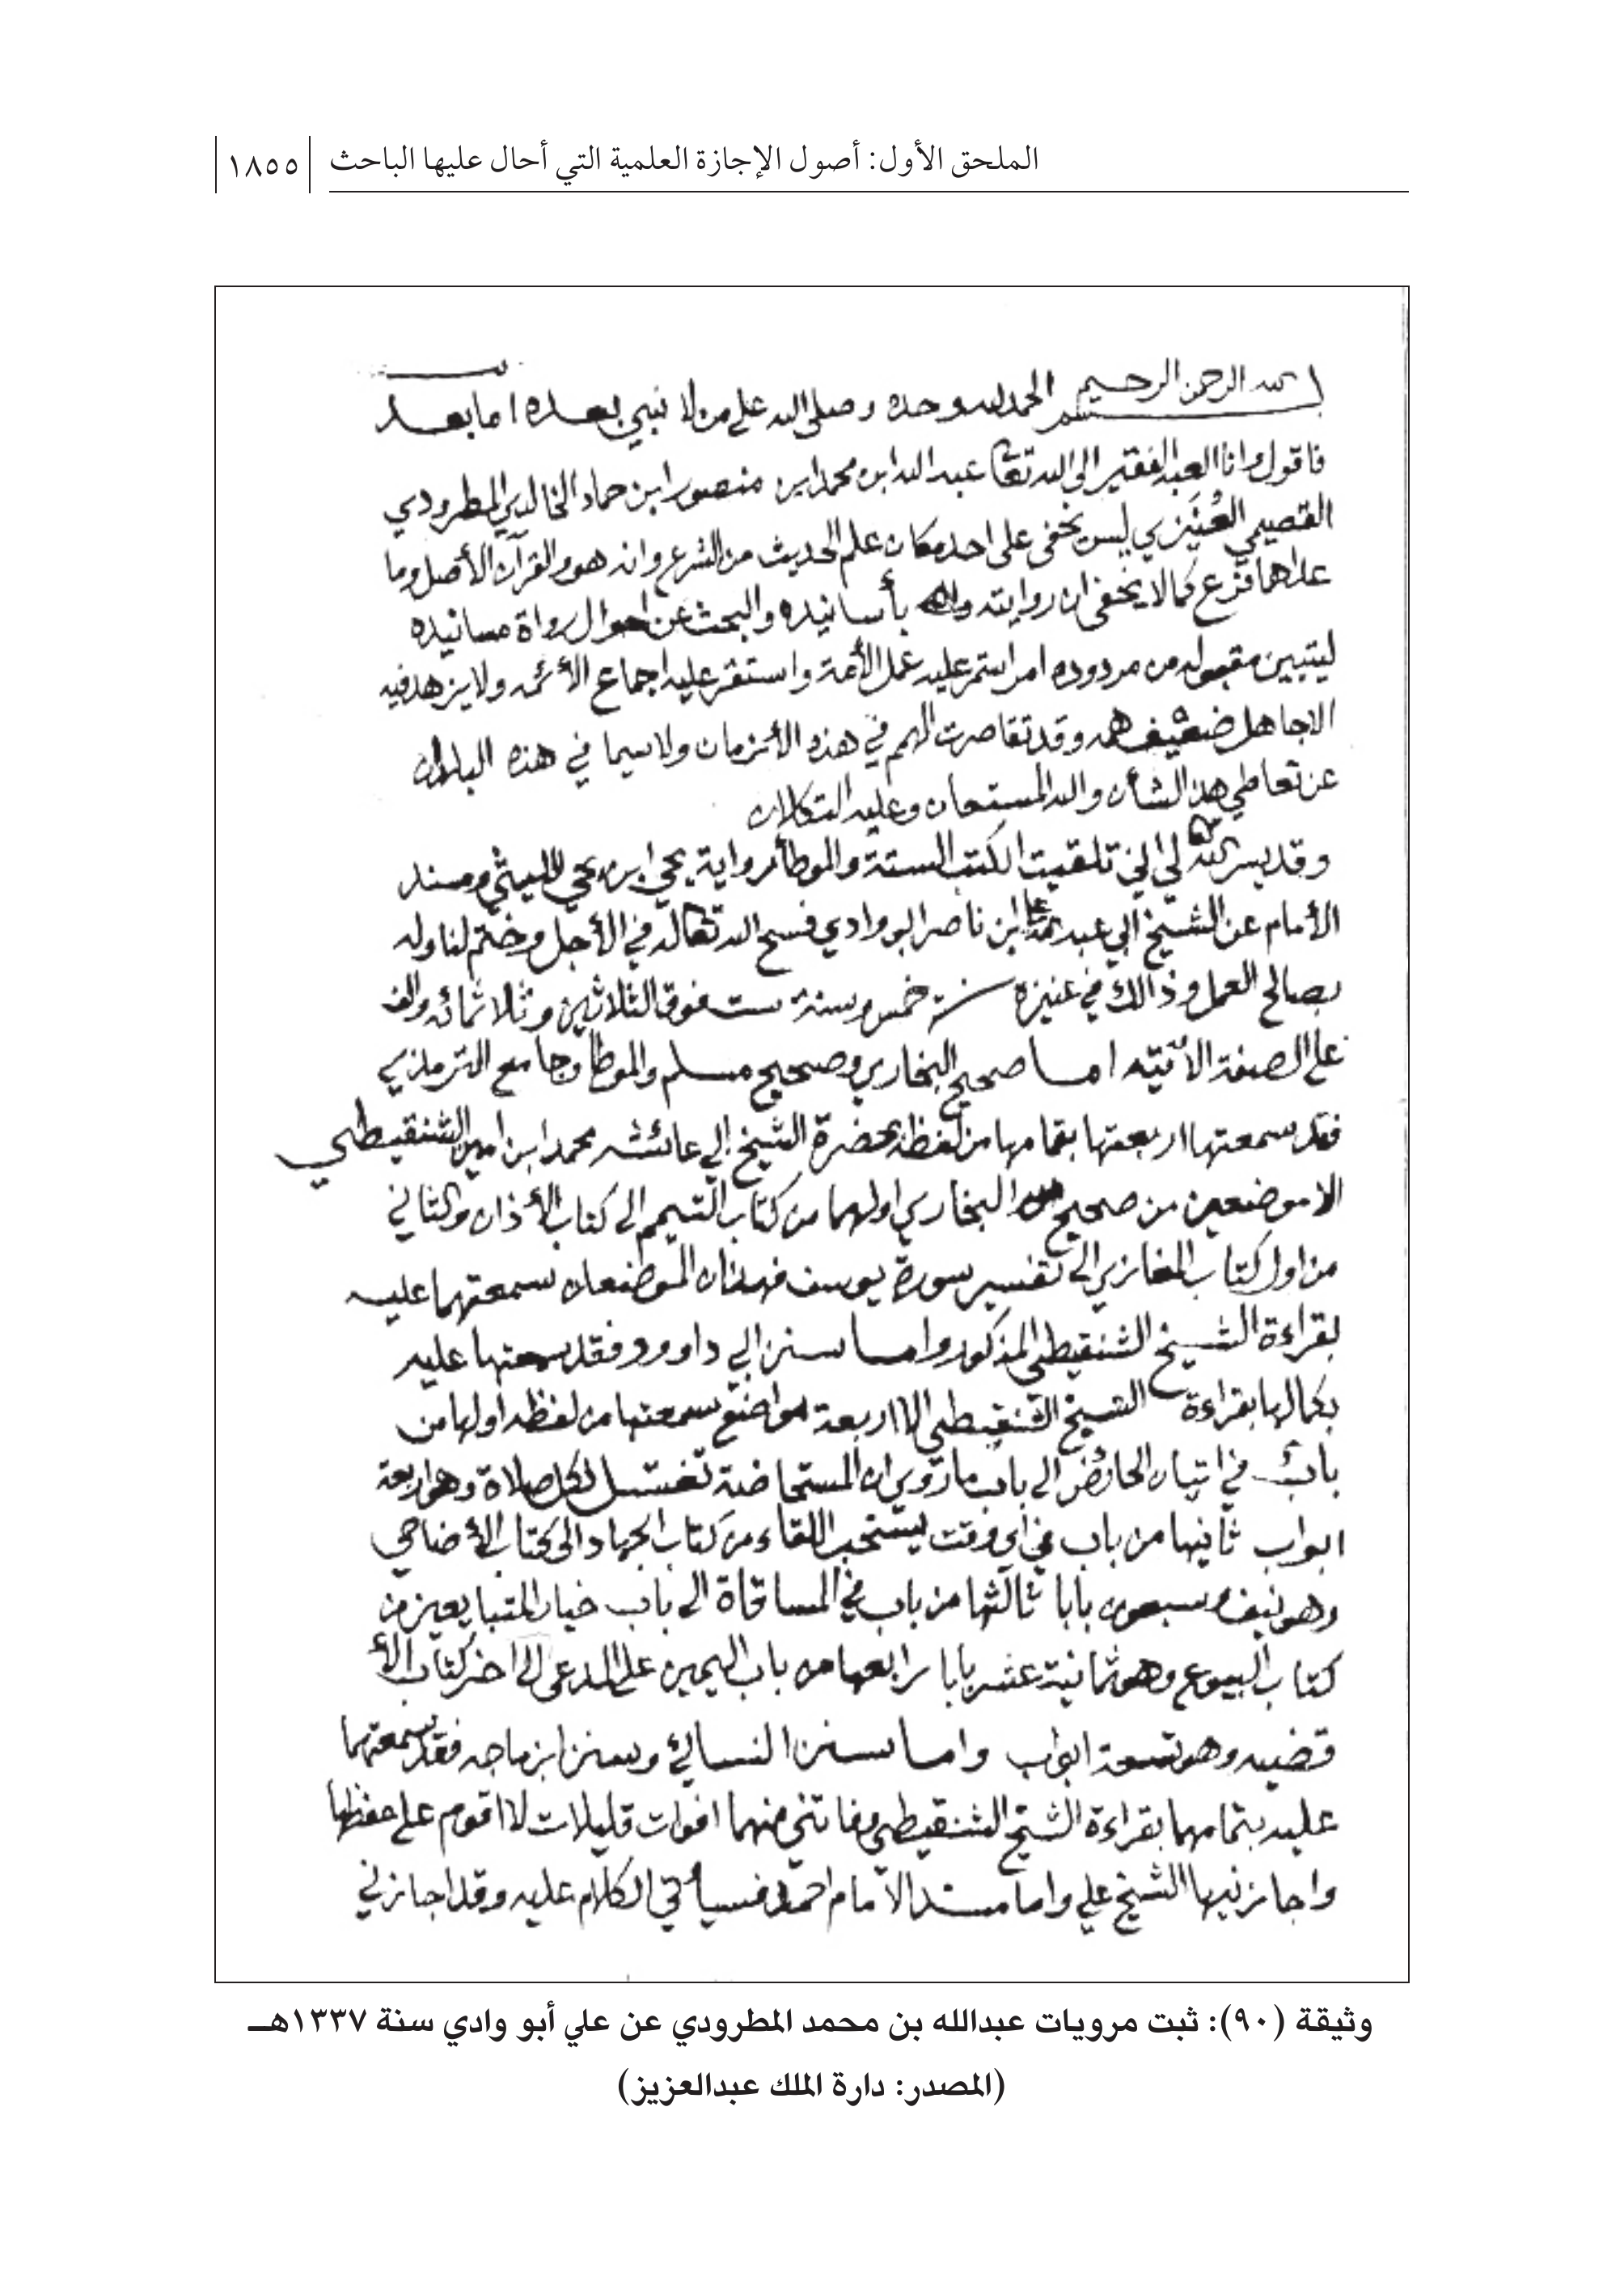 الملحق الأول: أصول الإجازة العلمية التي أحال عليها الباحث
١٨٥٥
بسم الله الرحمن الرحيم الحمد لله وحده وصلى الله على من لا نبي بعده اما بعد
فاقول وانا العبد الفقير الى الله تعالى عبد الله ابن محمد ابن منصور ابن حماد الخالدي المطرودي
القصيمي العُنَيزي ليس يخفى على احد مكان علم الحديث من الشرع وانه هو والقرآن الأصل وما
عداهما فرع كما لا يخفى ان روايته بأسانيده والبحث عن احوال رواة مسانيده
ليتبين مقبوله من مردوده امر استمر عليه عمل الأمة واستقر عليه اجماع الأئمه ولا يزهد فيه
الا جاهل ضعيف همه وقد تقاصرت الهمم في هذه الأزمان ولا سيما في هذه البلدان
عن تعاطي هذا الشأن والله المستعان وعليه التكلان
وقد يسر الله لي اني تلقيت الكتب الستة والموطأ رواية يحي ابن يحي الليثي ومسند
الأمام عن الشيخ ابي عبد الله علي ابن ناصر ابو وادي فسح الله تعالى له في الأجل وختم لنا وله
بصالح العمل وذالك في عنيزة سنة خمس وسنة ست فوق الثلاثين وثلاثمائه والف
على الصفة الأتيه اما صحيح البخاري وصحيح مسلم والموطأ وجامع الترمذي
فقد سمعتها اربعتها بتمامها من لفظه بحضرة الشيخ ابي عائشه محمد ابن امين الشنقيطي
الا موضعين من صحيح البخاري اولهما من كتاب التيمم الى كتاب الأذان والثاني
من اول كتاب المغازي الى تفسير سورة يوسف فهذان الموضعان سمعتهما عليه
بقراءة الشيخ الشنقيطي المذكور واما سنن ابي داوود فقد سمعتها عليه
بكمالها بقراءة الشيخ الشنقيطي الا اربعة مواضع سمعتها من لفظه اولها من
باب في اتيان الحائض الى باب ما روي ان المستحاضة تغتسل لكل صلاة وهو اربعة
ابواب ثانيها من باب في اي وقت يستحب اللقاء من كتاب الجهاد الى كتاب الأضاحي
وهو نيف وسبعون بابا ثالثها من باب في المساقاة الى باب خيار المتبايعين من
كتاب البيوع وهو ثمانية عشر بابا رابعها من باب اليمين على المدعى الى اخر كتاب الأ
قضيه وهو تسعة ابواب واما سنن النسائي وسنن ابن ماجه فقد سمعتهما
عليه بتمامهما بقراءة الشيخ الشنقيطي وفاتني منهما افوات قليلات لا اقوم على حفظها
واجازنيها الشيخ علي واما مسند الأمام احمد فسيأتي الكلام عليه وقد اجازني
وثيقة (٩٠): ثبت مرويات عبدالله بن محمد المطرودي عن علي أبو وادي سنة ١٣٣٧هـ
(المصدر: دارة الملك عبدالعزيز)